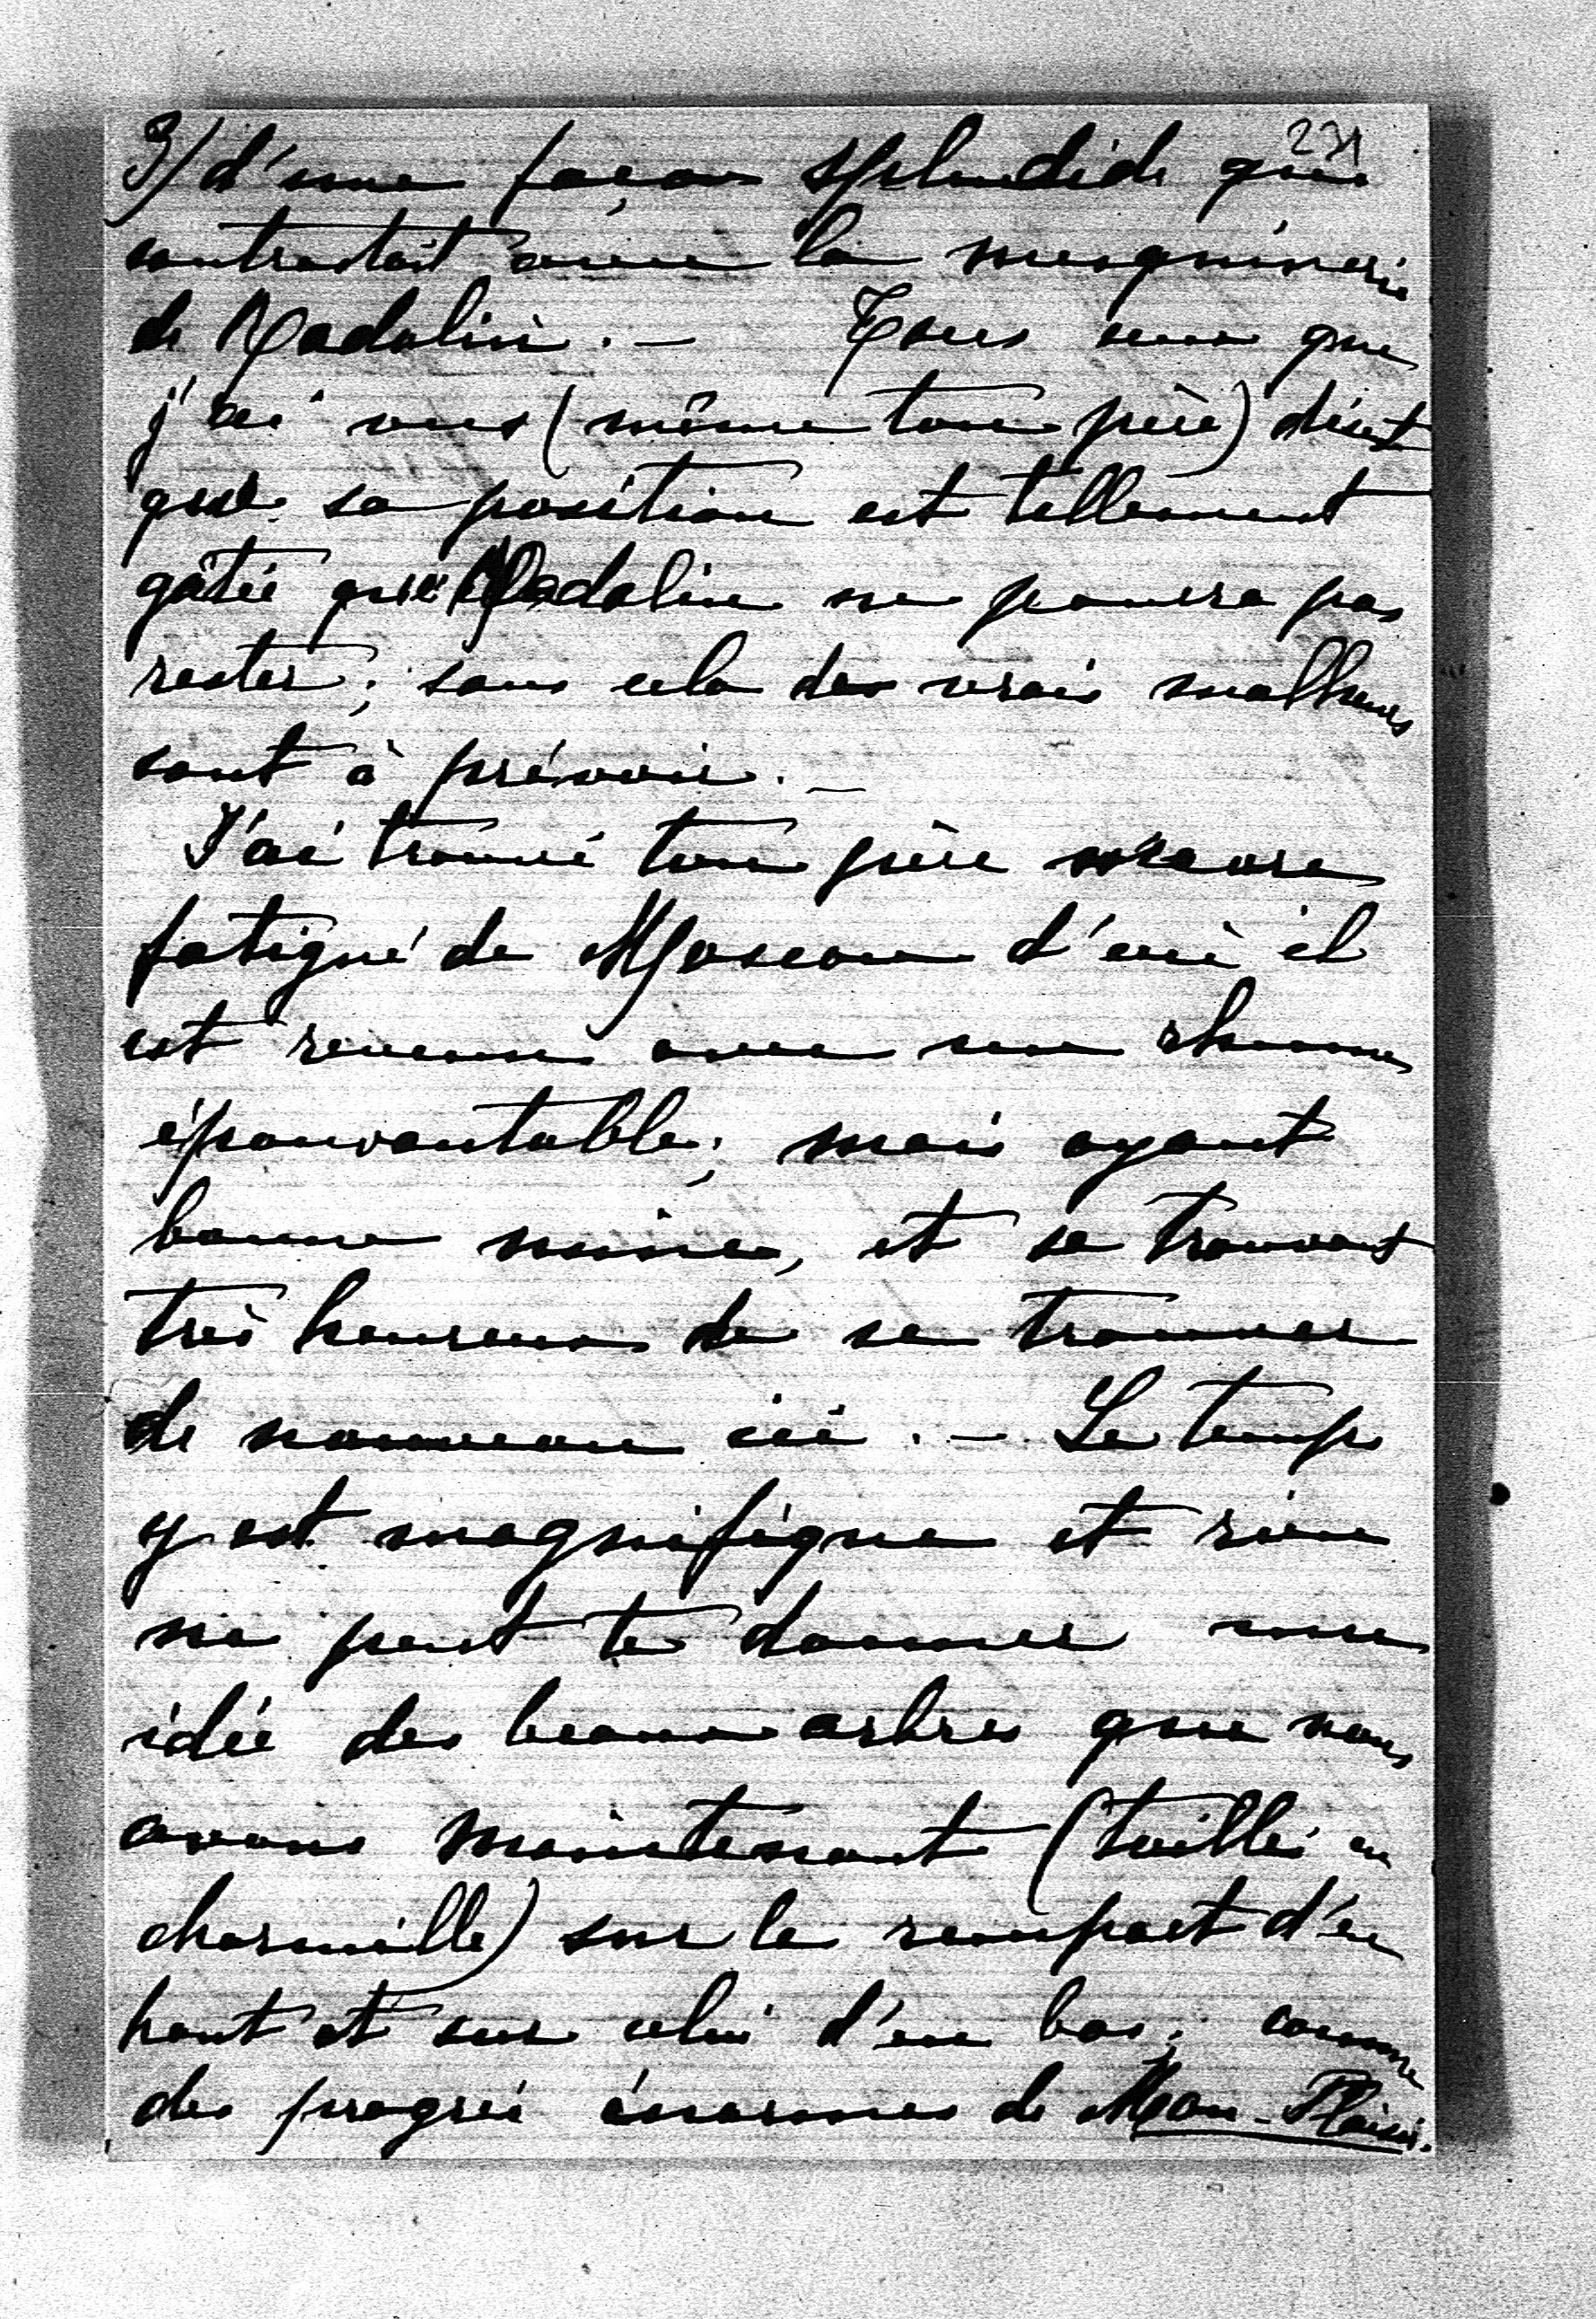 231
3/ d'une façon splendide qui
contrastait avec la mesquinerie
de Radolin. — Tous ceux que
j'ai vus (même ton père) disent
que sa position est tellement
gâtée que Radolin ne pourra pas
rester; sans cela des vrais malheurs
sont à prévoir. —
J'ai trouvé ton père encore
fatigué de Moscou d'où il
est revenu avec un rhume
épouvantable; mais ayant
bonne mine, et se trouvant
très heureux de se trouver
de nouveau ici. — Le temps
y est magnifique et rien
ne peut te donner une
idée des beaux arbres que nous
avons maintenant (taillés en
charmille) sur le rempart d'en
haut et sur celui d'en bas; comme
des progrès énormes de Mon-Plaisir.